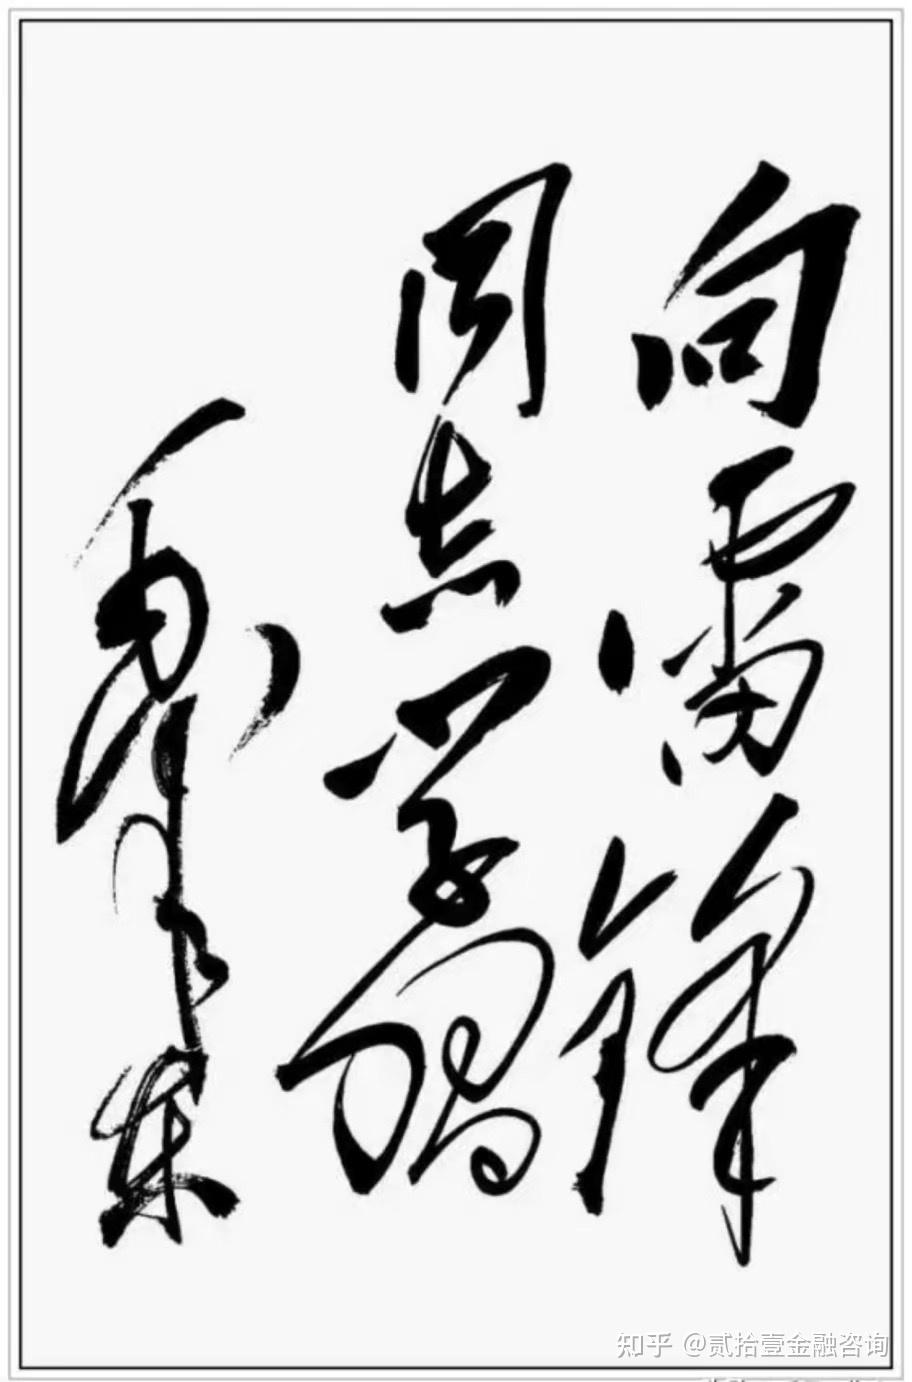 向雷锋
同志学习
毛泽东
知乎 @贰拾壹金融咨询